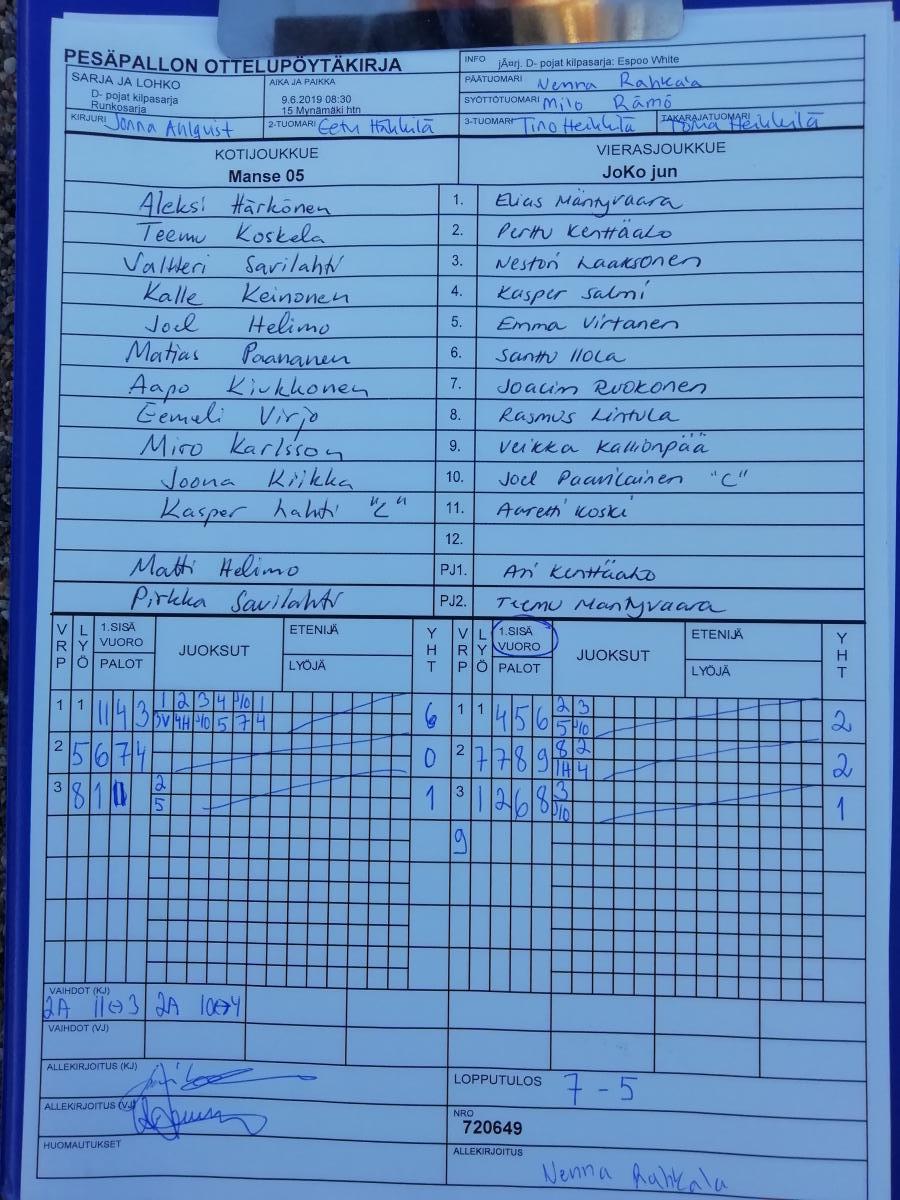 PESÄPALLON OTTELUPÖYTÄKIRJA
INFO jÃ¤rj. D- pojat kilpasarja: Espoo White
SARJA JA LOHKO
D- pojat kilpasarja
Runkosarja
AIKA JA PAIKKA
9.6.2019 08:30
15 Mynämäki htn
PÄÄTUOMARI Nenna Rahkala
SYÖTTÖTUOMARI Milo Rämö
KIRJURI Jonna Ahlqvist
2-TUOMARI Eetu Häkkilä
3-TUOMARI Tino Heikkilä
TAKARAJATUOMARI Heikkilä
KOTIJOUKKUE
Manse 05
VIERASJOUKKUE
JoKo jun
Aleksi Härkönen 1. Elias Mäntyvaara
Teemu Koskela 2. Perttu Kenttäako
Valtteri Savilahti 3. Nestori Laaksonen
Kalle Keinonen 4. Kasper Salmi
Joel Helimo 5. Emma Virtanen
Matias Paananen 6. Santtu Ilola
Aapo Kiukkonen 7. Joacim Ruokonen
Eemeli Virjo 8. Rasmus Lintula
Miro Karlsson 9. Veikka Kallionpää
Joona Kiikka 10. Joel Paavilainen "C"
Kasper Lahti "C" 11. Aaretti Koski
12.
Matti Helimo PJ1. Ari Kenttäako
Pirkka Savilahti PJ2. Teemu Mäntyvaara
VRP LYÖ 1.SISÄ VUORO PALOT JUOKSUT ETENIJÄ LYÖJÄ YHT VRP LYÖ 1.SISÄ VUORO PALOT JUOKSUT ETENIJÄ LYÖJÄ YHT
1 1 11 4 3 1 2 3 4 J10 1 6 1 1 4 5 6 2 3 2
3V 4H J10 5 7 4 5 J10
2 5 6 7 4 0 2 7 7 8 9 8 2 2
1H 4
3 8 1 2 1 3 1 2 6 8 3 1
5 J10
9
VAIHDOT (KJ)
2A 11↔3 2A 10↔4
VAIHDOT (VJ)
ALLEKIRJOITUS (KJ)
LOPPUTULOS 7 - 5
ALLEKIRJOITUS (VJ)
NRO
720649
HUOMAUTUKSET
ALLEKIRJOITUS
Nenna Rahkala